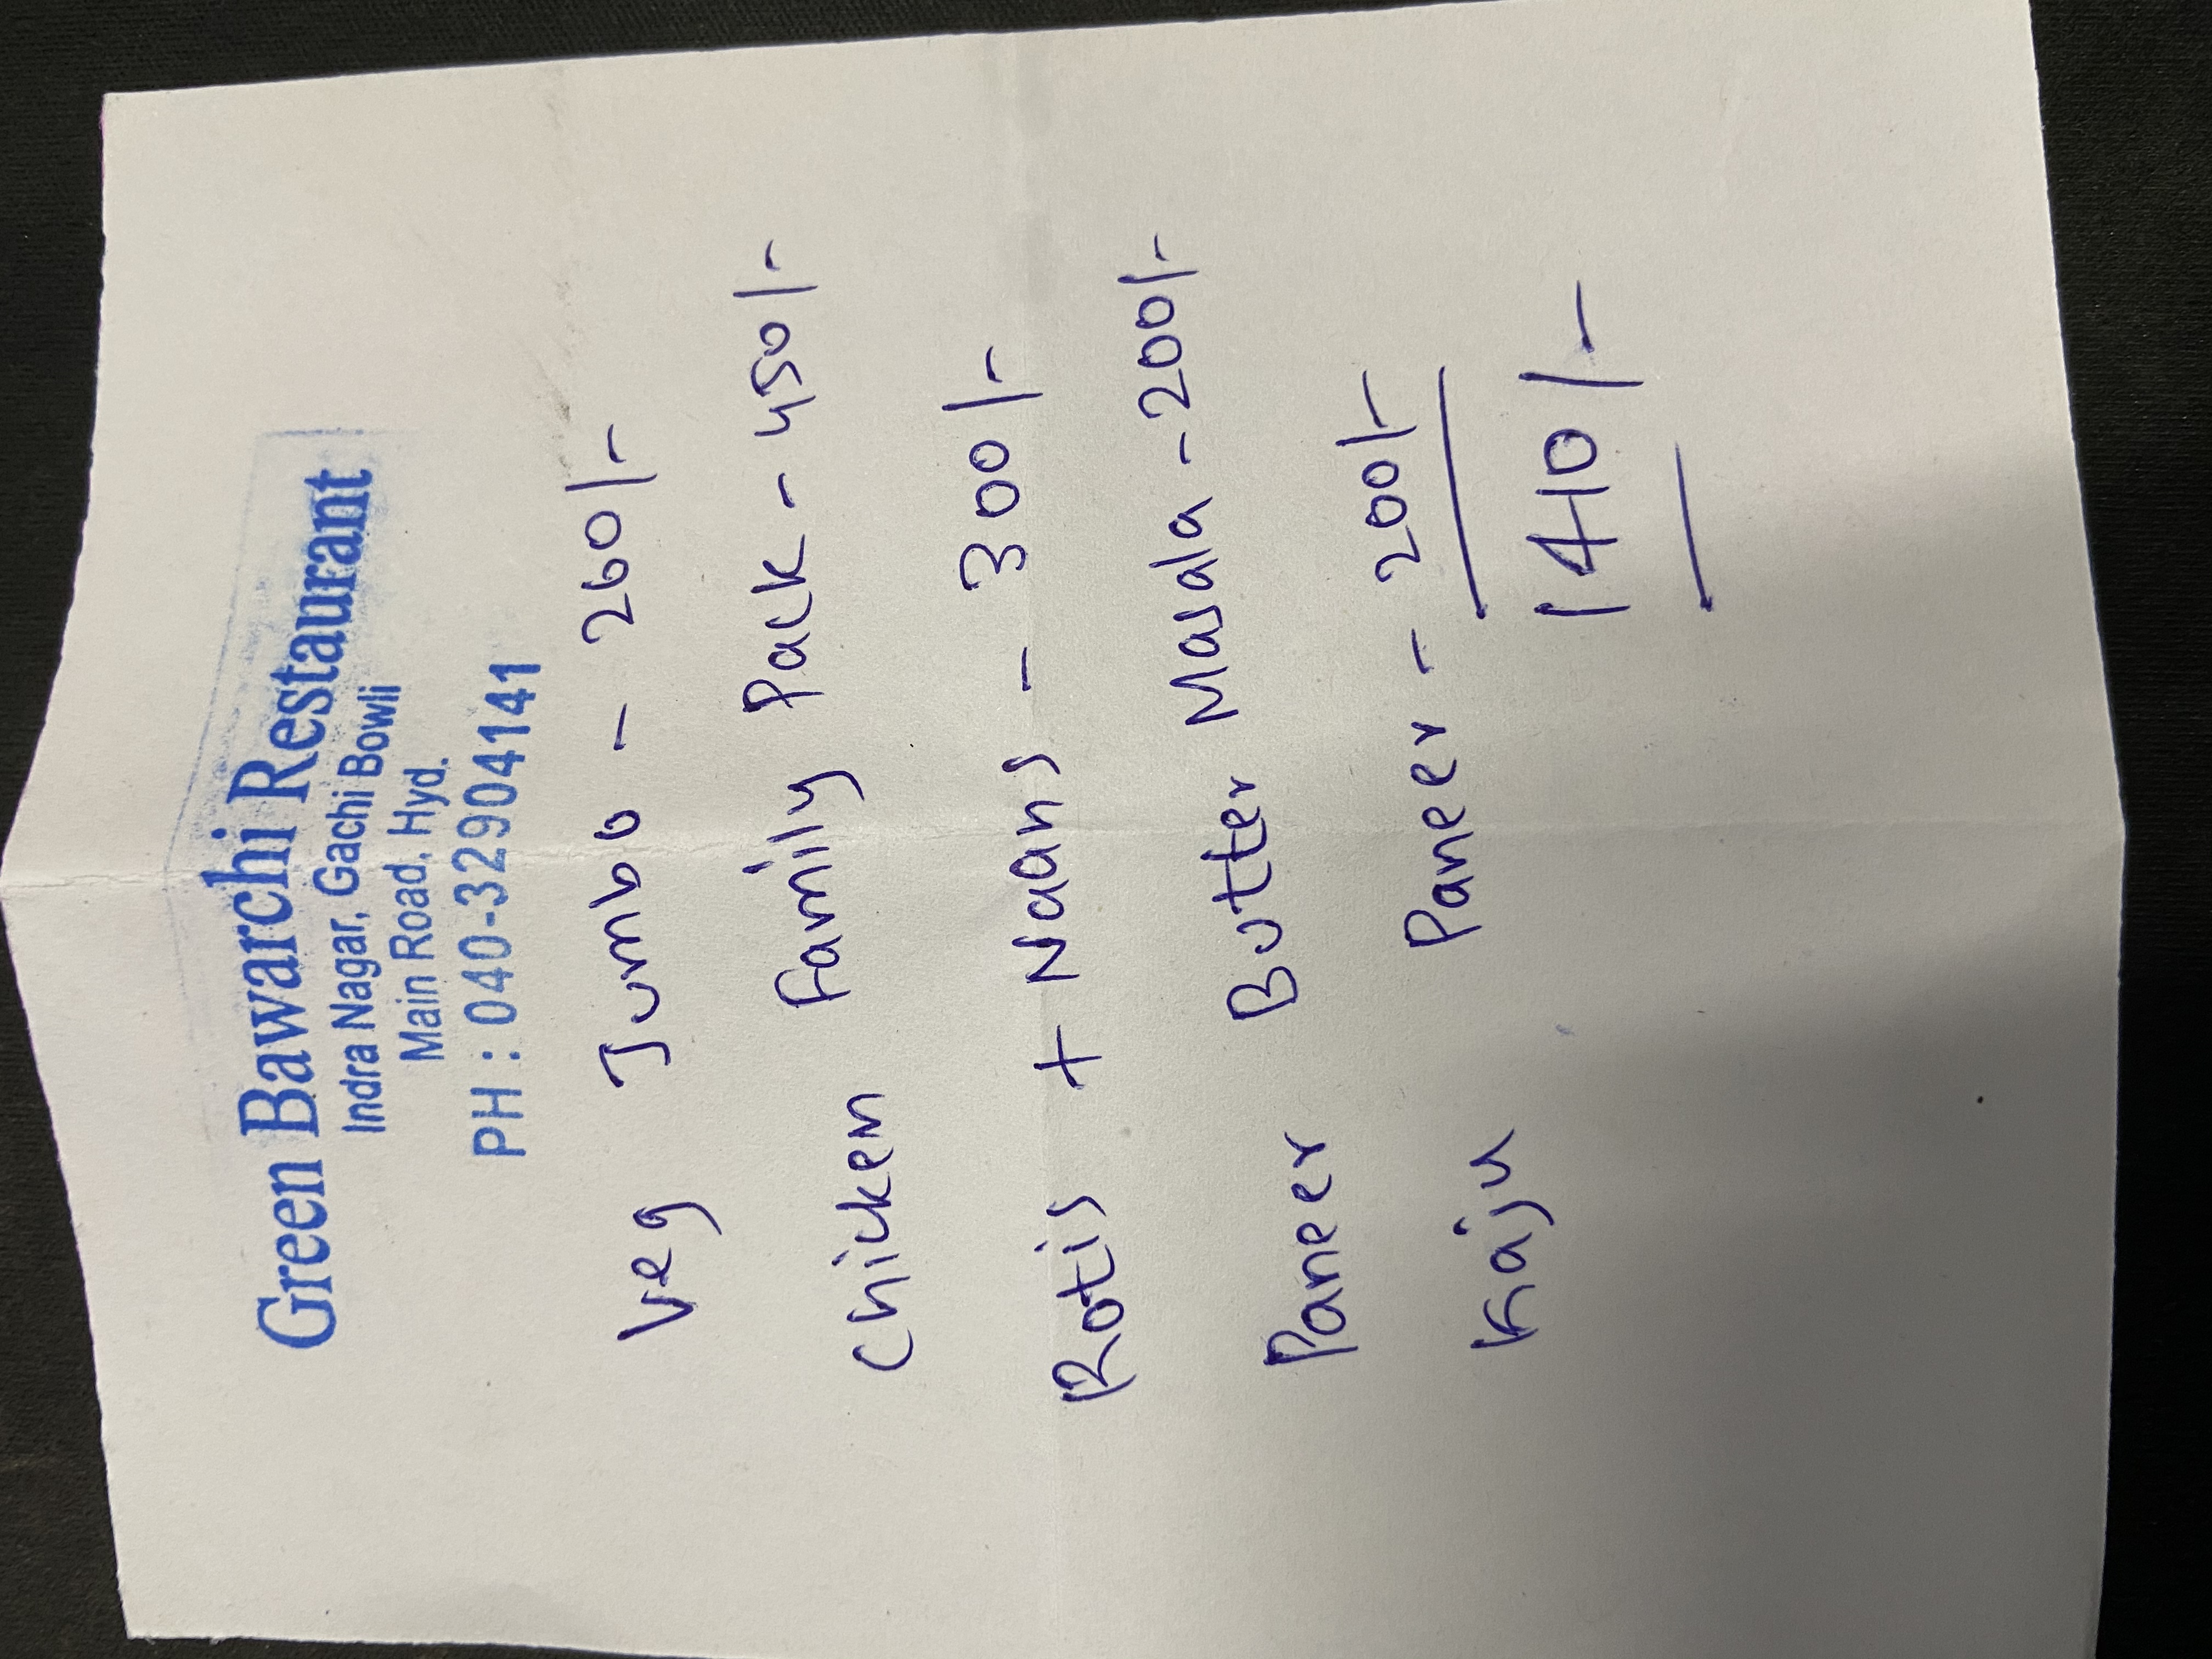 Green Bawarchi Restaurant
Indra Nagar, Gachi Bowli
Main Road, Hyd.
PH : 040-32904141
Veg Jumbo - 260/-
Chicken Family Pack - 450/-
Rotis + Naans - 300/-
Paneer Butter Masala - 200/-
Kaju Paneer - 200/-
1410/-